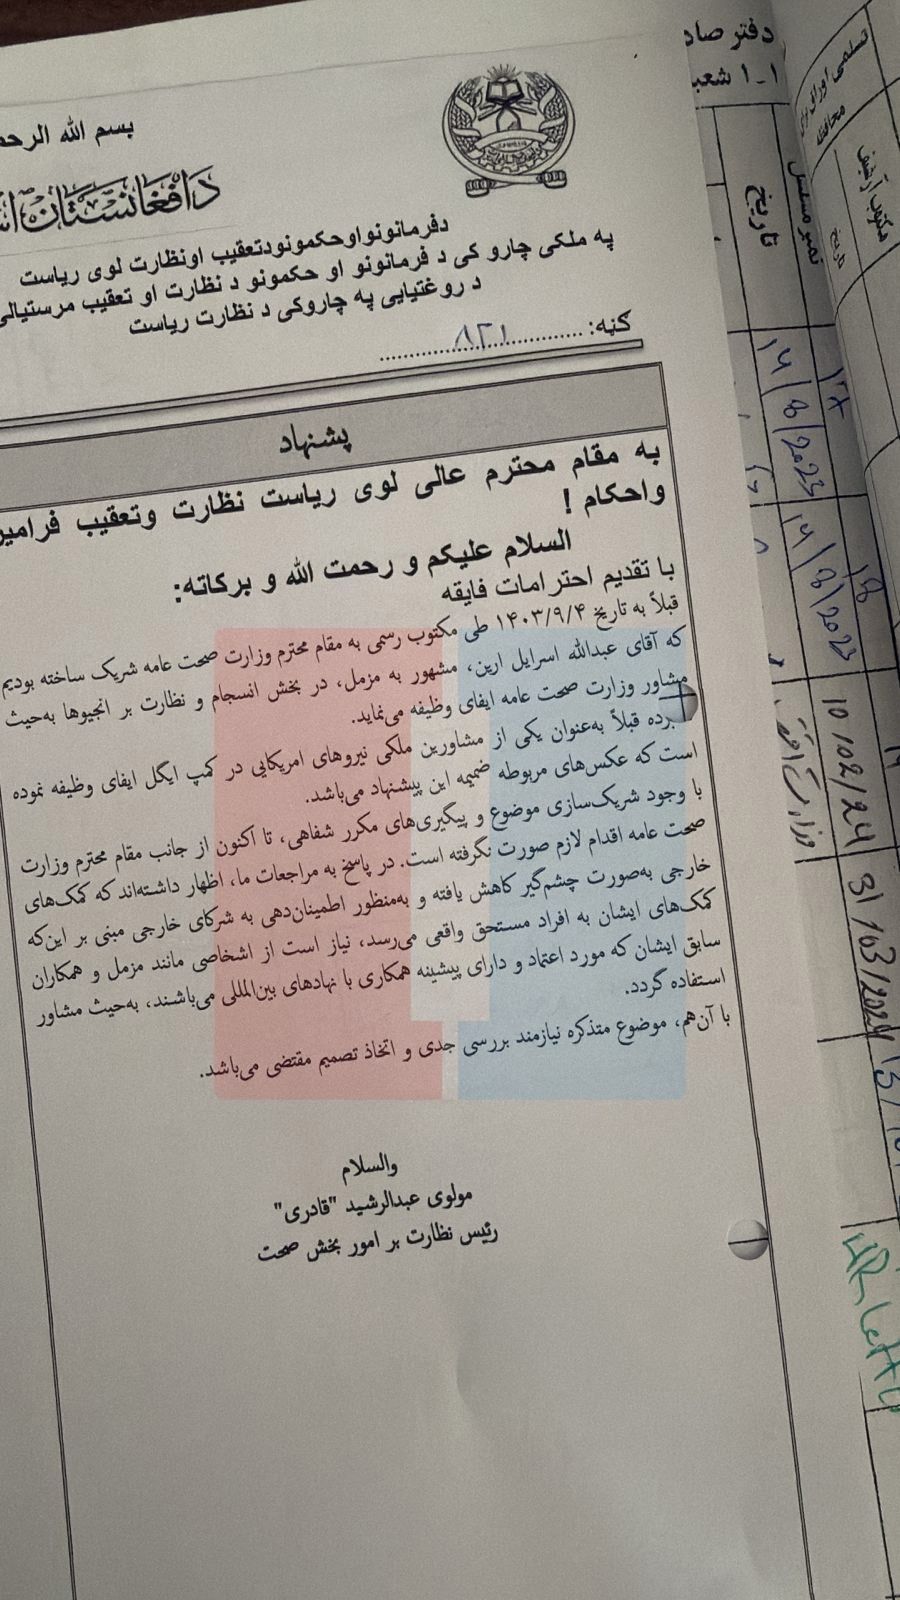 بسم الله الرحم
دافغانستان
دفرمانونواوحکمونودتعقیب اونظارت لوی ریاست
په ملکی چارو کی د فرمانونو او حکمونو د نظارت او تعقیب مرستیالی
د روغتیایی په چاروکی د نظارت ریاست
ګڼه: ۸۲۱
پشنهاد
به مقام محترم عالی لوی ریاست نظارت وتعقیب فرامین
واحکام !
السلام علیکم و رحمت الله و برکاته:
با تقدیم احترامات فایقه
قبلاً به تاریخ ۱۴۰۳/۹/۴ طی مکتوب رسمی به مقام محترم وزارت صحت عامه شریک ساخته بودیم
که آقای عبدالله اسرایل ارین، مشهور به مزمل، در بخش انسجام و نظارت بر انجیوها به‌حیث
مشاور وزارت صحت عامه ایفای وظیفه می‌نماید.
برده قبلاً به‌عنوان یکی از مشاورین ملکی نیروهای امریکایی در کمپ ایگل ایفای وظیفه نموده
است که عکس‌های مربوطه ضمیمه این پیشنهاد می‌باشد.
با وجود شریک‌سازی موضوع و پیگیری‌های مکرر شفاهی، تا اکنون از جانب مقام محترم وزارت
صحت عامه اقدام لازم صورت نگرفته است. در پاسخ به مراجعات ما، اظهار داشته‌اند که کمک‌های
خارجی به‌صورت چشم‌گیر کاهش یافته و به‌منظور اطمینان‌دهی به شرکای خارجی مبنی بر این‌که
کمک‌های ایشان به افراد مستحق واقعی می‌رسد، نیاز است از اشخاصی مانند مزمل و همکاران
سابق ایشان که مورد اعتماد و دارای پیشینه همکاری با نهادهای بین‌المللی می‌باشند، به‌حیث مشاور
استفاده گردد.
با آن‌هم، موضوع متذکره نیازمند بررسی جدی و اتخاذ تصمیم مقتضی می‌باشد.
والسلام
مولوی عبدالرشید "قادری"
رئیس نظارت بر امور بخش صحت
دفتر صاد
۱-۱ شعب
نمبر مسلسل
تاریخ
تسلمی اوراق برای
محافظه
مکتوب آرشیف
تاریخ
14/8/2023
14/8/2023
10/02/24
31/03/2024